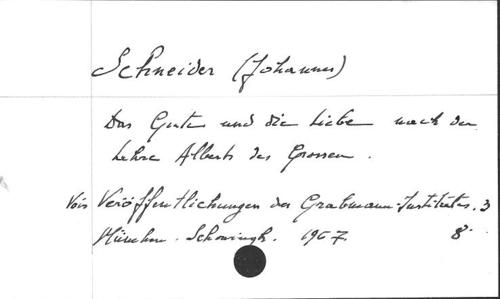 Schneider (Johannes)
Das Gute und die Liebe nach der
Lehre Alberts des Grossen.
Vois Veröffentlichungen des Grabmann-Institutes. 3
München. Schöningh. 1967. 8°